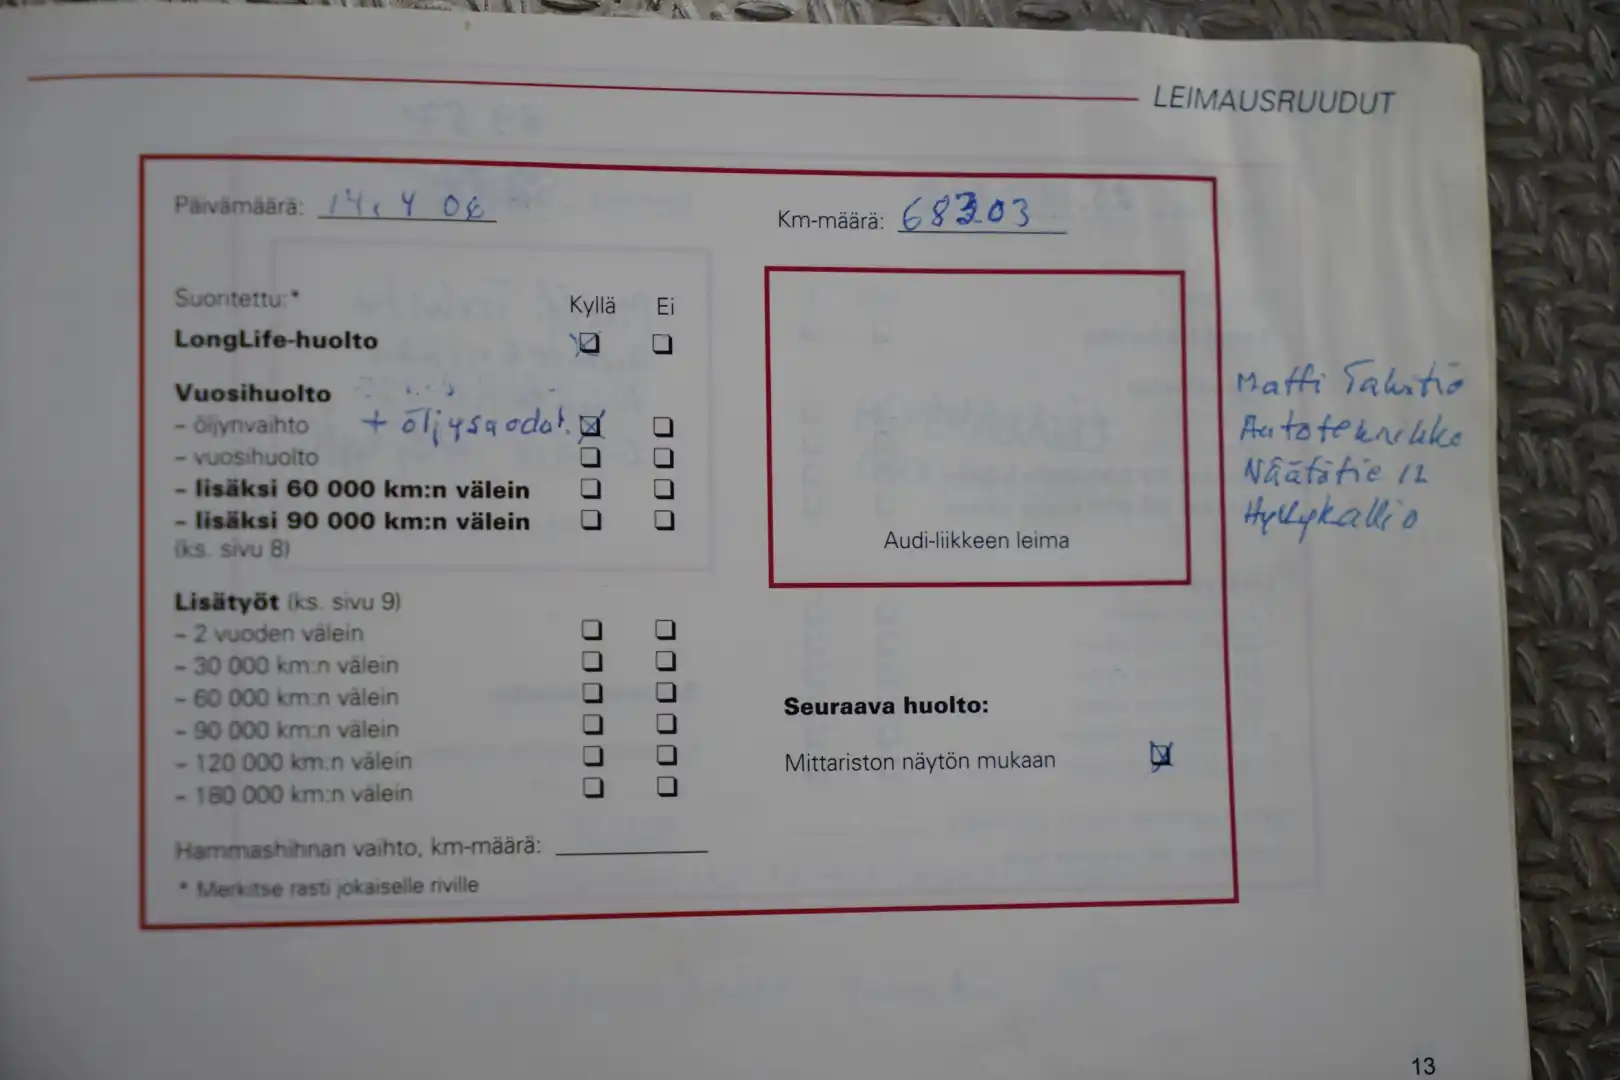 LEIMAUSRUUDUT
Päivämäärä: 14.4 06
Km-määrä: 68303
Suoritettu:*
Kyllä Ei
LongLife-huolto
Vuosihuolto
- öljynvaihto + öljysuodat.
- vuosihuolto
- lisäksi 60 000 km:n välein
- lisäksi 90 000 km:n välein
(ks. sivu 8)
Lisätyöt (ks. sivu 9)
- 2 vuoden välein
- 30 000 km:n välein
- 60 000 km:n välein
- 90 000 km:n välein
- 120 000 km:n välein
- 180 000 km:n välein
Hammashihnan vaihto, km-määrä:
* Merkitse rasti jokaiselle riville
Audi-liikkeen leima
Matti
Autoteknikko
Näätätie 12
Hyllykallio
Seuraava huolto:
Mittariston näytön mukaan
13